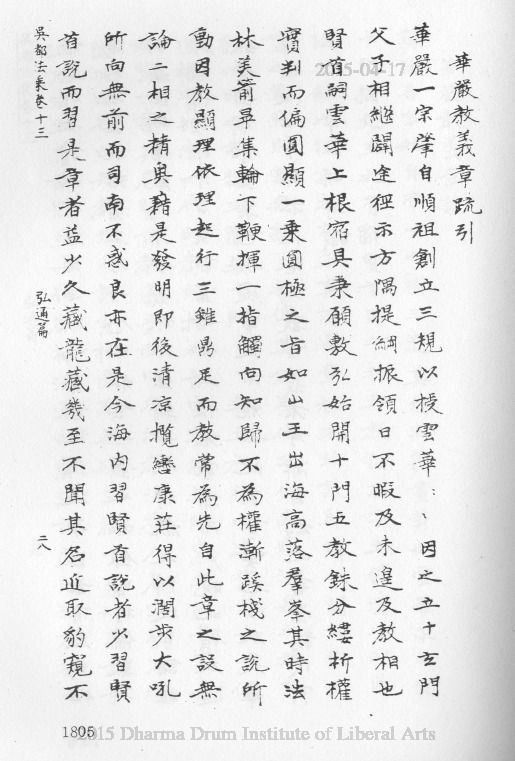 華嚴教義章疏引
華嚴一宗肇自順祖創立三規以授雲華〻〻因之五十玄門
父子相繼闢途徑示方隅提綱振領日不暇及未遑及教相也
賢首嗣雲華上根宿具秉願敷弘始開十門五教銖分縷析權
實判而偏圓顯一乘圓極之旨如山王出海高落羣峯其時法
林美箭畢集輪下鞭揮一指觸向知歸不為權漸蹊棧之說所
動因教顯理依理起行三雖鼎足而教常為先自此章之設無
論二相之精奧藉是發明即後清凉攬轡康莊得以濶步大吼
所向無前而司南不惑良亦在是今海內習賢首說者少習賢
首說而習是章者益少久藏龍藏幾至不聞其名近取豹窺不
吳都法乘卷十三
弘通篇
二八
1805
2015-04-17
2015 Dharma Drum Institute of Liberal Arts